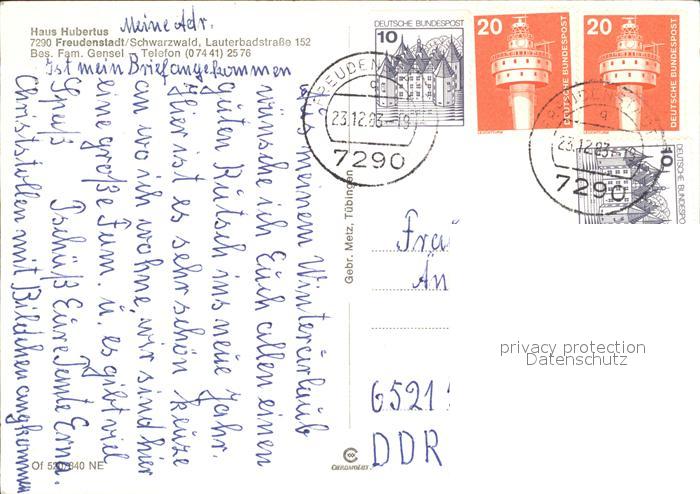 Meine Adr.
Haus Hubertus
7290 Freudenstadt/Schwarzwald, Lauterbadstraße 152
Bes. Fam. Gensel – Telefon (0 74 41) 25 76
Ist mein Brief angekommen
Aus meinem Winterurlaub
wünsche ich Euch allen einen
guten Rutsch ins neue Jahr.
Hier ist es sehr schön
an wo ich wohne, wir sind hier
eine große Fam. u. es gibt viel
Spaß Tschüß Eure Tante Erna.
Christstollen mit Bildchen angekommen
Of 520/840 NE
Gebr. Metz, Tübingen
10 DEUTSCHE BUNDESPOST
20 DEUTSCHE BUNDESPOST
20 DEUTSCHE BUNDESPOST
10 DEUTSCHE BUNDESPOST
23.12.83-19
7290
23.12.83-19
7290
6521
DDR
privacy protection
Datenschutz